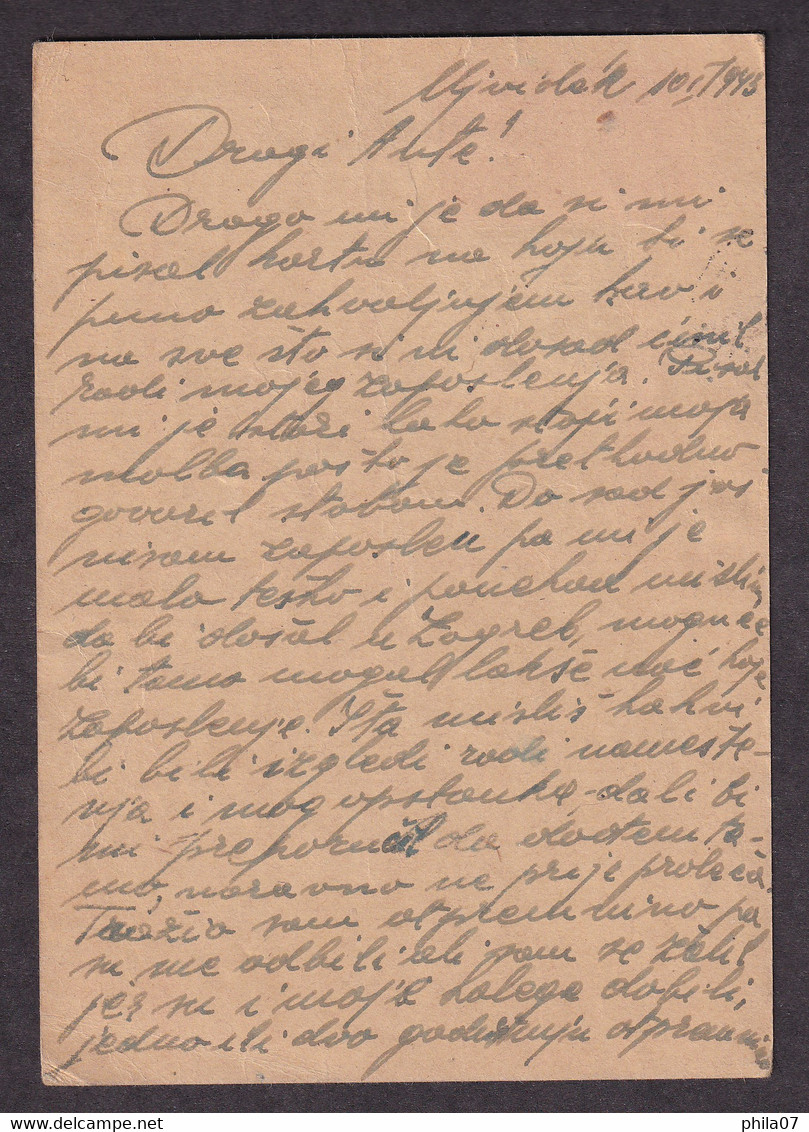 Ujvidék 10 I 943
Dragi Ante!
Drago mi je da si mi
pisal kartu na koju ti se
puno zahvaljujem kao i
na sve što si mi dosad činil
radi mojeg zaposlenja. Pisal
mi je stari kako stoji moja
molba pošto je prethodno
govoril stobom. Do sad još
nisam zaposlen pa mi je
malo teško i ponekad mislim
da bi došal u Zagreb, moguće
bi tamo mogal lakše nać koje
zaposlenje. Šta misliš kakvi
bi bili izgledi radi namešte-
nja i mog opstanka - dali bi
mi preporučil da dođem ta-
mo, naravno ne prije proleća.
Tražio sam otpremninu pa
su me odbili ali sam se žalil
jer su i moje kolege dobili,
jedno ili dvo godišnju otpremninu
Delcampe.net
phila07